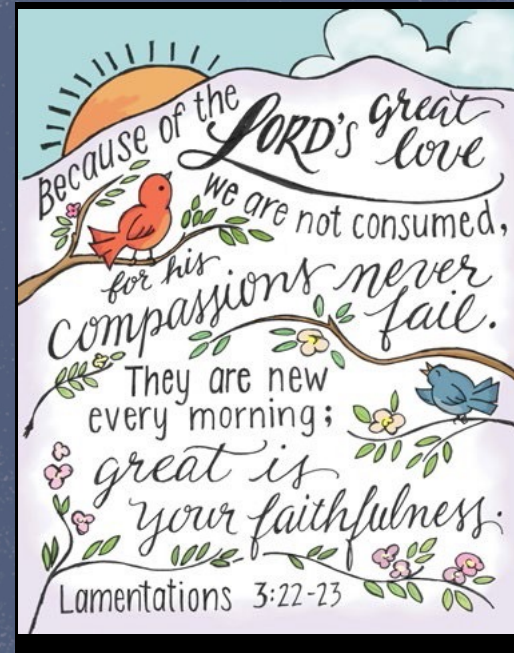 Because of the LORD's great love
we are not consumed,
for his
compassions never fail.
They are new
every morning;
great is
your faithfulness.
Lamentations 3:22-23